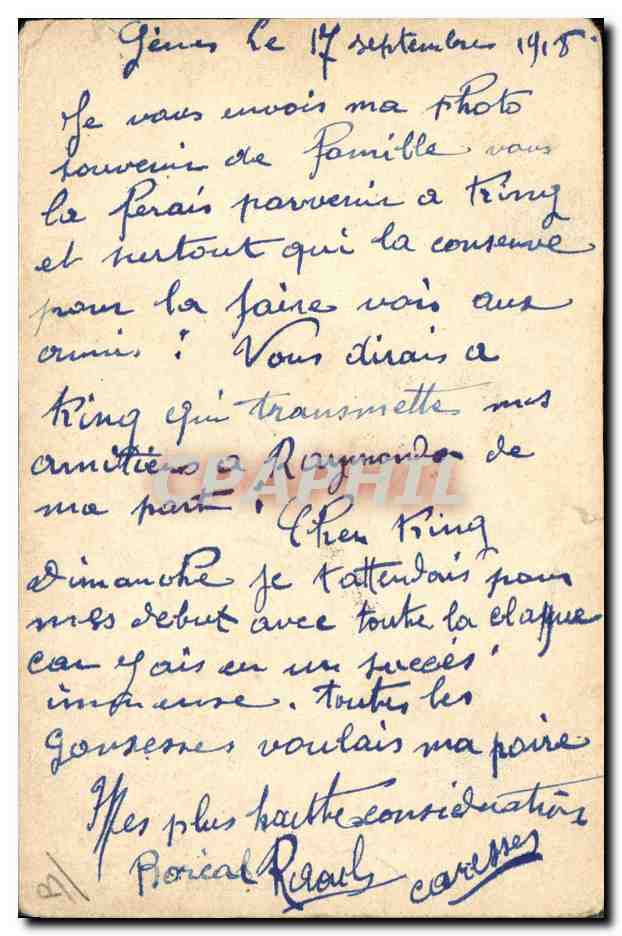 Gênes le 17 septembre 1918.
Je vous envois ma photo
souvenir de famille vous
la ferais parvenir a King
et surtout qui la conserve
pour la faire vois aux
amis! Vous dirais a
King qui transmette mes
amitiers a Raymonde de
ma part!
Cher King
Dimanche je t'attendais pour
mes debut avec toute la claque
car j'ais eu un succès
immense. toutes les
gonsesses voulais ma poire
Mes plus haute considération
Raoul
caresses
CPAPHIL